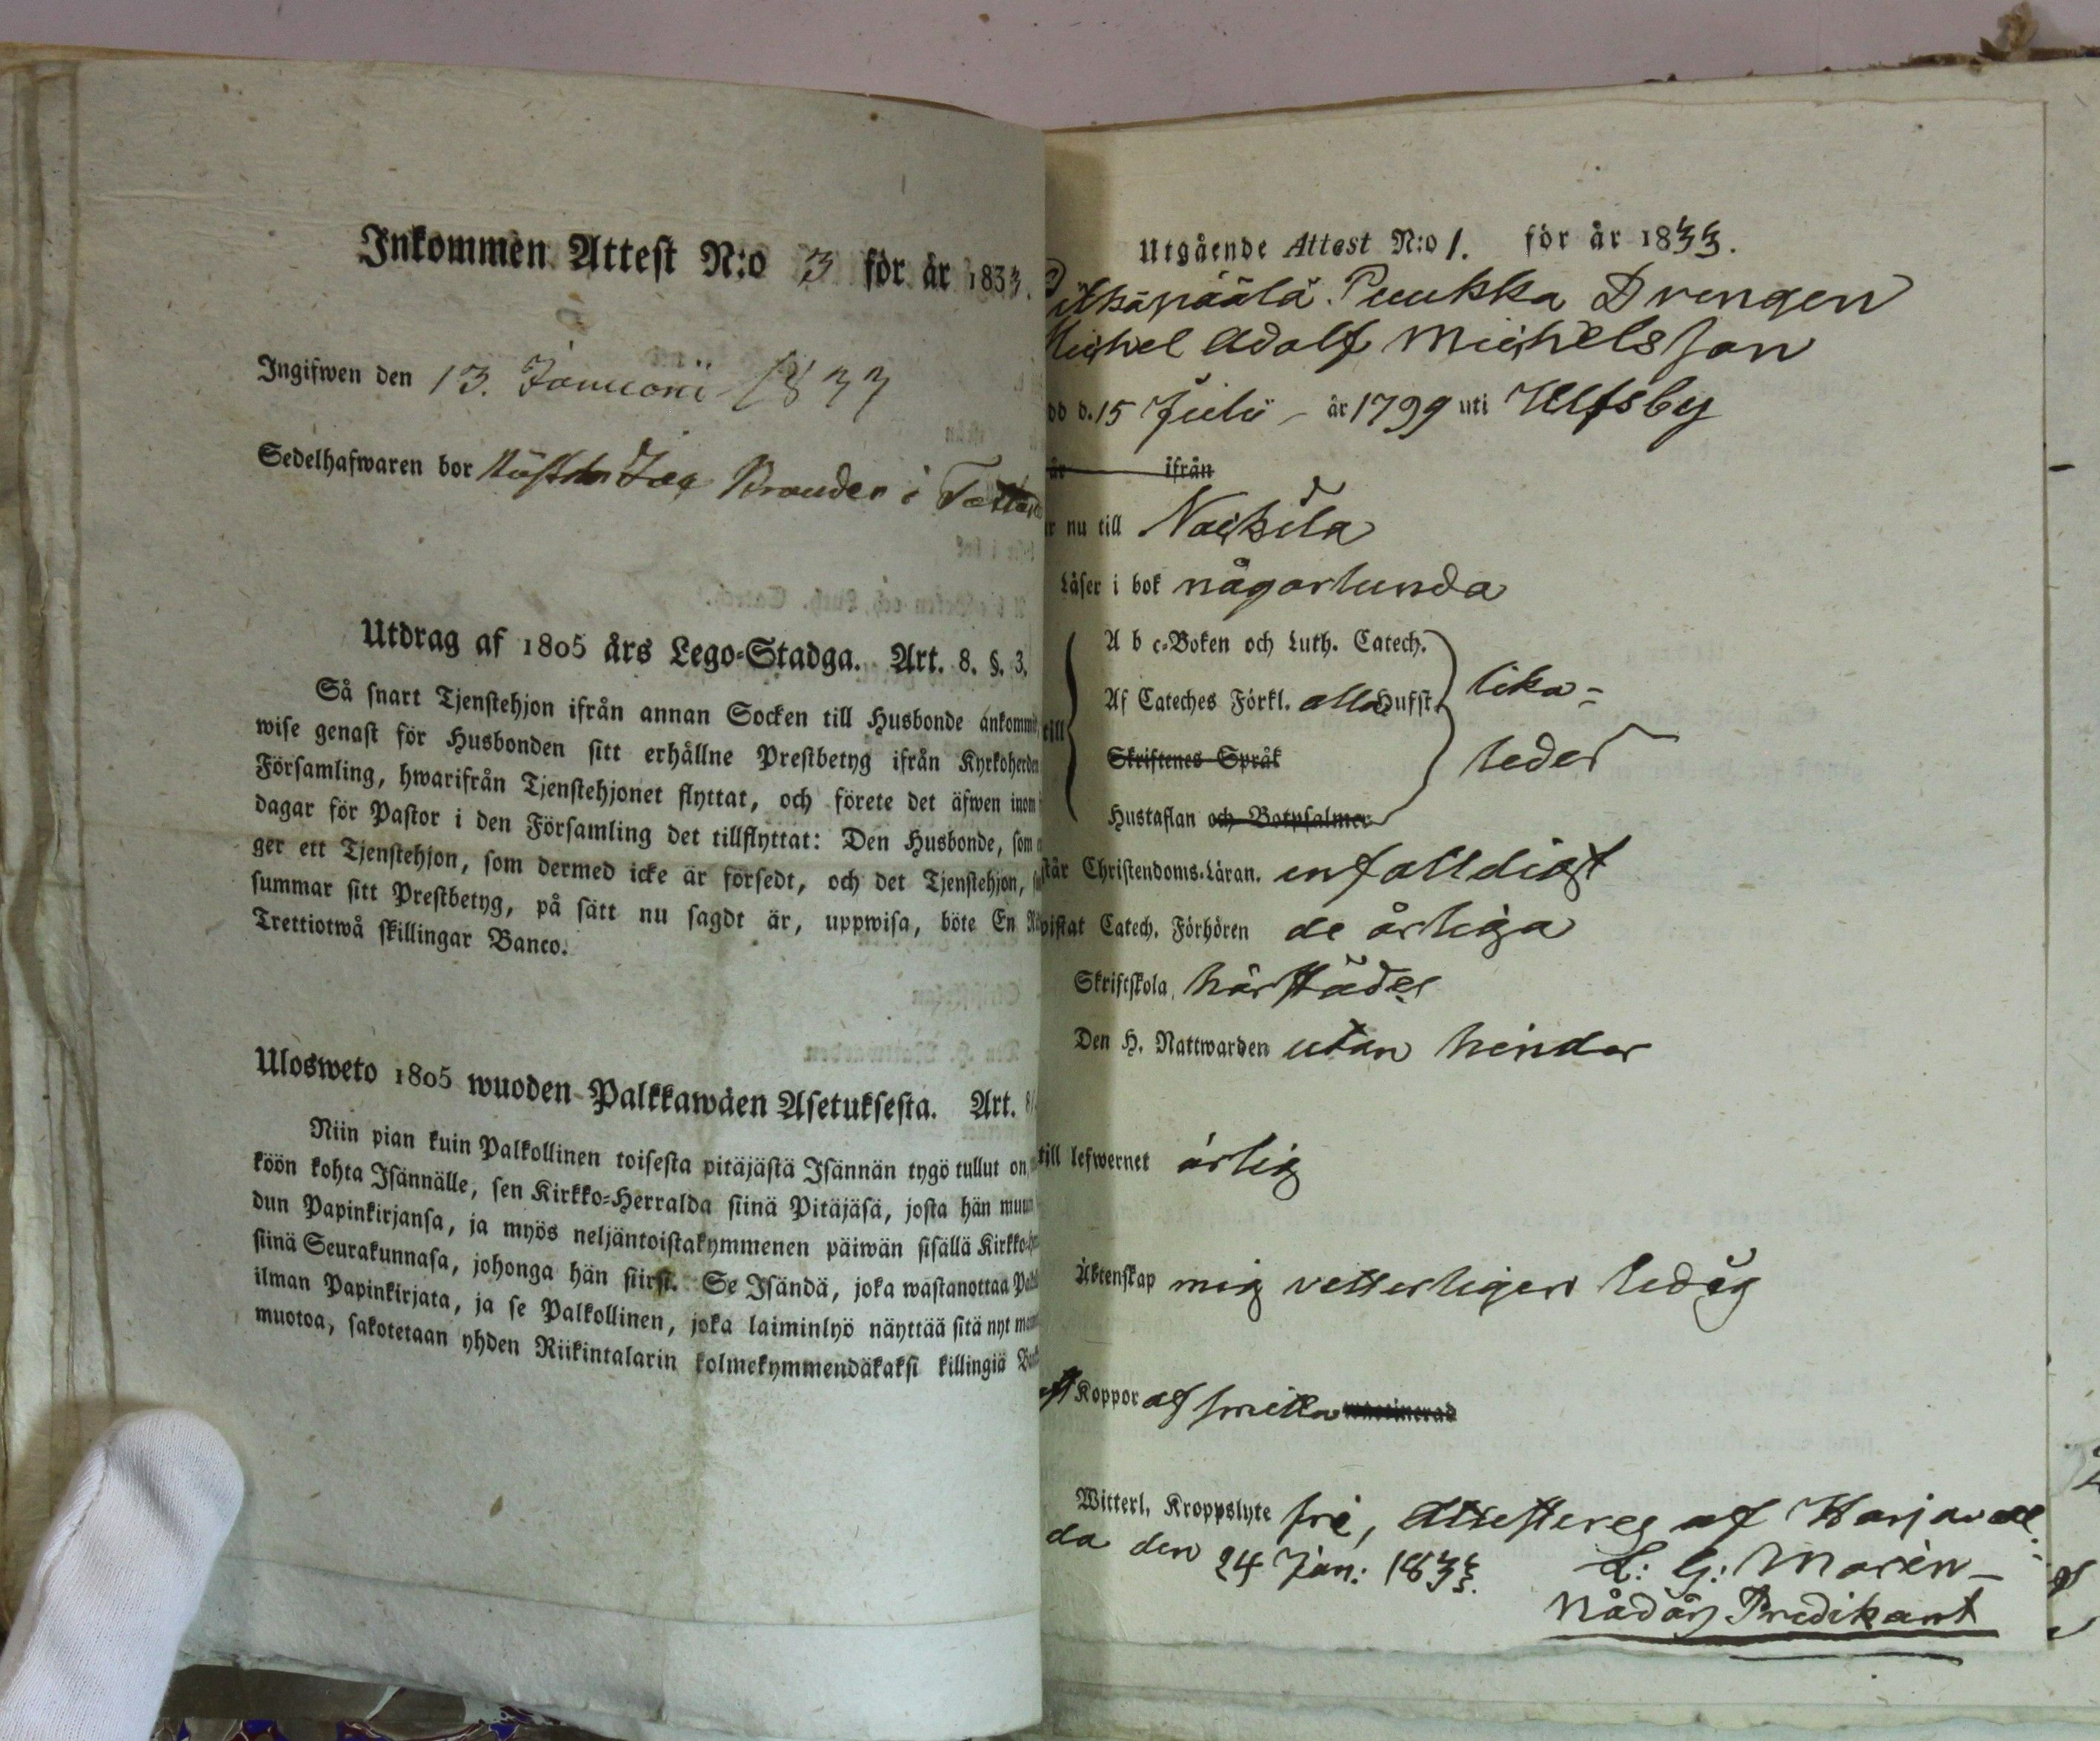 Inkommen Attest N:o 3 för år 1833.
Ingifwen den 13. Januarii 1833
Sedelhafwaren bor i
Utdrag af 1805 års Lego-Stadga. Art. 8. §. 3.
Så snart Tjenstehjon ifrån annan Socken till Husbonde ankommit,
wise genast för Husbonden sitt erhållne Prestbetyg ifrån Kyrkoherden
Församling, hwarifrån Tjenstehjonet flyttat, och förete det äfwen inom
dagar för Pastor i den Församling det tillflyttat: Den Husbonde, som
ger ett Tjenstehjon, som dermed icke är försedt, och det Tjenstehjon,
summar sitt Prestbetyg, på sätt nu sagdt är, uppwisa, böte En
Trettiotwå skillingar Banco.
Ulosweto 1805 wuoden Palkkawäen Asetuksesta. Art. 8
Niin pian kuin Palkollinen toisesta pitäjästä Isännän tygö tullut on,
köön kohta Isännälle, sen Kirkko-Herralda siinä Pitäjäsä, josta hän muut
dun Papinkirjansa, ja myös neljäntoistakymmenen päiwän sisällä Kirkko-
siinä Seurakunnasa, johonga hän siirst. Se Isändä, joka wastanottaa
ilman Papinkirjata, ja se Palkollinen, joka laiminlyö näyttää sitä nyt
muotoa, sakotetaan yhden Riikintalarin kolmekymmendäkaksi killingiä
Utgående Attest N:o 1. för år 1833.
Pitkäpäälä Puukka Drengen
Michel Adolf Michelsson
dd d. 15 Julii år 1799 uti Ulfsby
år ifrån
r nu till Nackila
Läser i bok någorlunda
A b c-Boken och Luth. Catech.
Af Cateches Förkl. alla Hufst. lika-
till
Skriftenes Språk ledes
Hustaflan och Botpsalmer
står Christendoms-Läran. enfalldigt
vistat Catech. Förhören de årliga
Skriftskola härstädes
Den H. Nattwarden utan hinder
till lefwernet ärlig
Äktenskap mig vetterligen ledig
Koppor af smitta vaccinerad
Witterl. Kroppslyte fri, Attesteres af Harjavall
da den 24 Jan: 1833. L: G: Morén
Nådårs Predikant